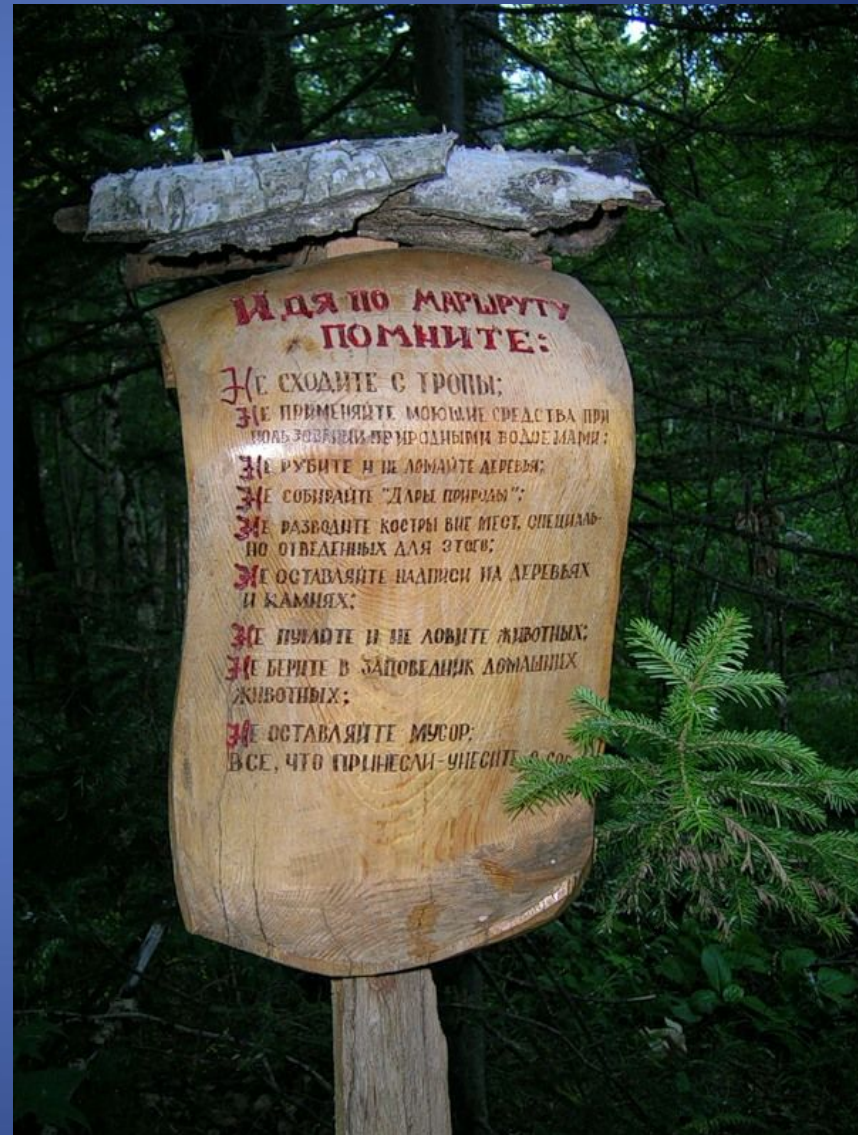 ИДЯ ПО МАРШРУТУ
ПОМНИТЕ:
НЕ СХОДИТЕ С ТРОПЫ;
НЕ ПРИМЕНЯЙТЕ МОЮЩИЕ СРЕДСТВА ПРИ
ПОЛЬЗОВАНИИ ПРИРОДНЫМИ ВОДОЕМАМИ;
НЕ РУБИТЕ И НЕ ЛОМАЙТЕ ДЕРЕВЬЯ;
НЕ СОБИРАЙТЕ "ДАРЫ ПРИРОДЫ";
НЕ РАЗВОДИТЕ КОСТРЫ ВНЕ МЕСТ, СПЕЦИАЛЬ-
НО ОТВЕДЕННЫХ ДЛЯ
НЕ ОСТАВЛЯЙТЕ НАДПИСИ НА ДЕРЕВЬЯХ
И КАМНЯХ;
НЕ ПУГАЙТЕ И НЕ ЛОВИТЕ ЖИВОТНЫХ;
НЕ БЕРИТЕ В ЗАПОВЕДНИК ДОМАШНИХ
ЖИВОТНЫХ;
НЕ ОСТАВЛЯЙТЕ МУСОР;
ВСЕ, ЧТО ПРИНЕСЛИ-УНЕСИТЕ С